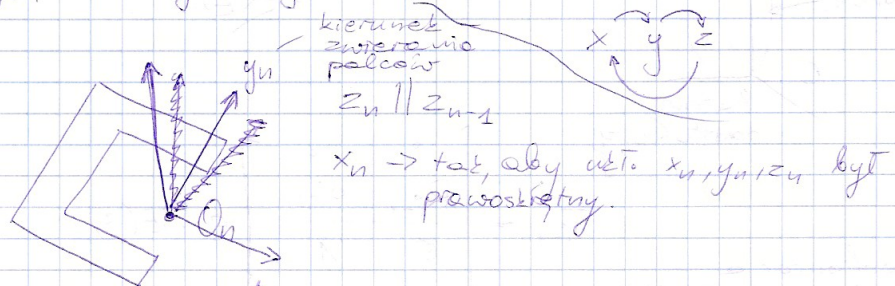 kierunek
zwierania
palców
x y z
yn
zn || zn-1
xn → tak, aby ukł. xn, yn, zn był
prawoskrętny.
On